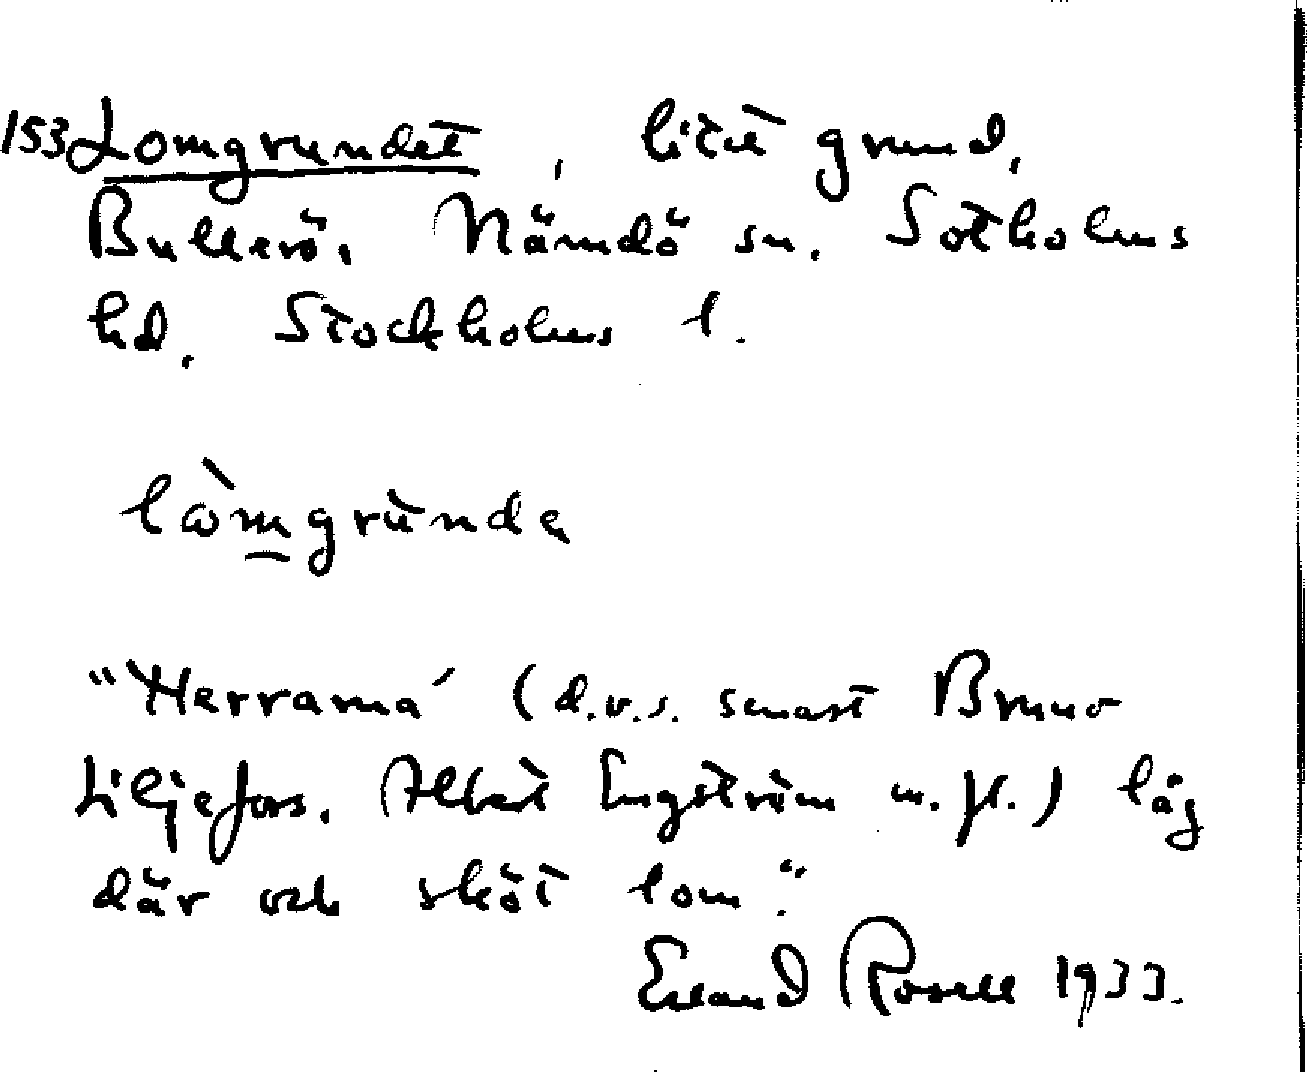 153 Lomgrundet, litet grund,
Bullerö. Nämdö sn. Sotholms
hd. Stockholms l.
lòmgrùnda
"Herrarna' (d.v.s. senast Bruno
Liljefors, Albert Engström m.fl.) låg
där och sköt lom".
Erland Rosell 1933.